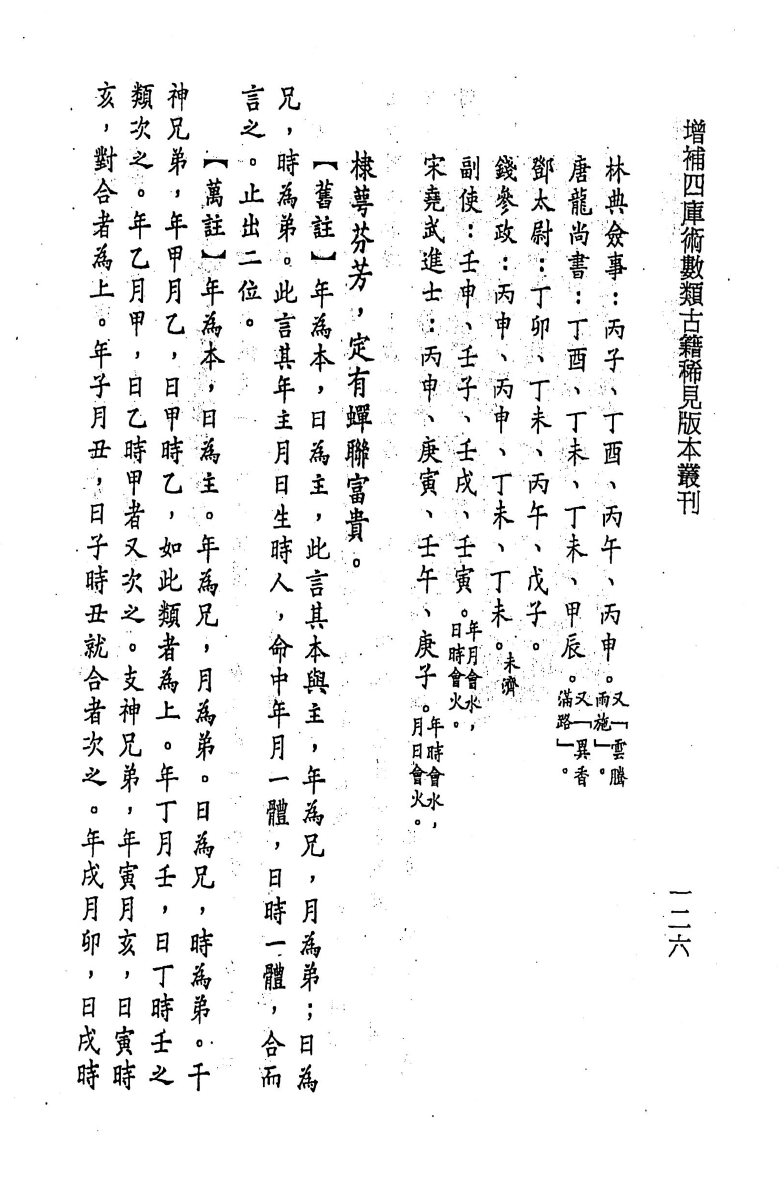 增補四庫術數類古籍稀見版本叢刊
一二六
林典僉事：丙子、丁酉、丙午、丙申。又「雲騰雨施」。
唐龍尚書：丁酉、丁未、丁未、甲辰。又「異香滿路」。
鄧太尉：丁卯、丁未、丙午、戊子。
錢參政：丙申、丙申、丁未、丁未。未濟
副使：壬申、壬子、壬戌、壬寅。年月會水，日時會火。
宋堯武進士：丙申、庚寅、壬午、庚子。年時會水，月日會火。
棣萼芬芳，定有蟬聯富貴。
【舊註】年為本，日為主，此言其本與主，年為兄，月為弟；日為
兄，時為弟。此言其年主月日生時人，命中年月一體，日時一體，合而
言之。止出二位。
【萬註】年為本，日為主。年為兄，月為弟。日為兄，時為弟。干
神兄弟，年甲月乙，日甲時乙，如此類者為上。年丁月壬，日丁時壬之
類次之。年乙月甲，日乙時甲者又次之。支神兄弟，年寅月亥，日寅時
亥，對合者為上。年子月丑，日子時丑就合者次之。年戌月卯，日戌時